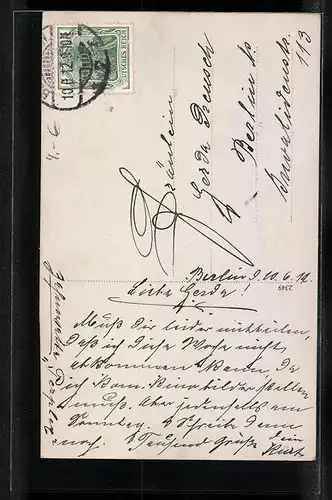 DEUTSCHES REICH
10.6.12.
Fräulein
Gerda
Berlin N
Invalidenstr.
113
Berlin d. 10.6.12
2349
Liebe Gerda!
Muß Dir leider mitteilen,
daß ich diese Woche nicht
abkommen kann. Da
ich Kinobilder stellen
muß. Aber jedenfalls am
Sonntag. Schreib Dann
noch. Tausend Grüße Dein
Kurt